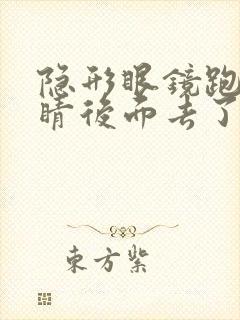 隐形眼镜跑
睛後面去了
東方紫